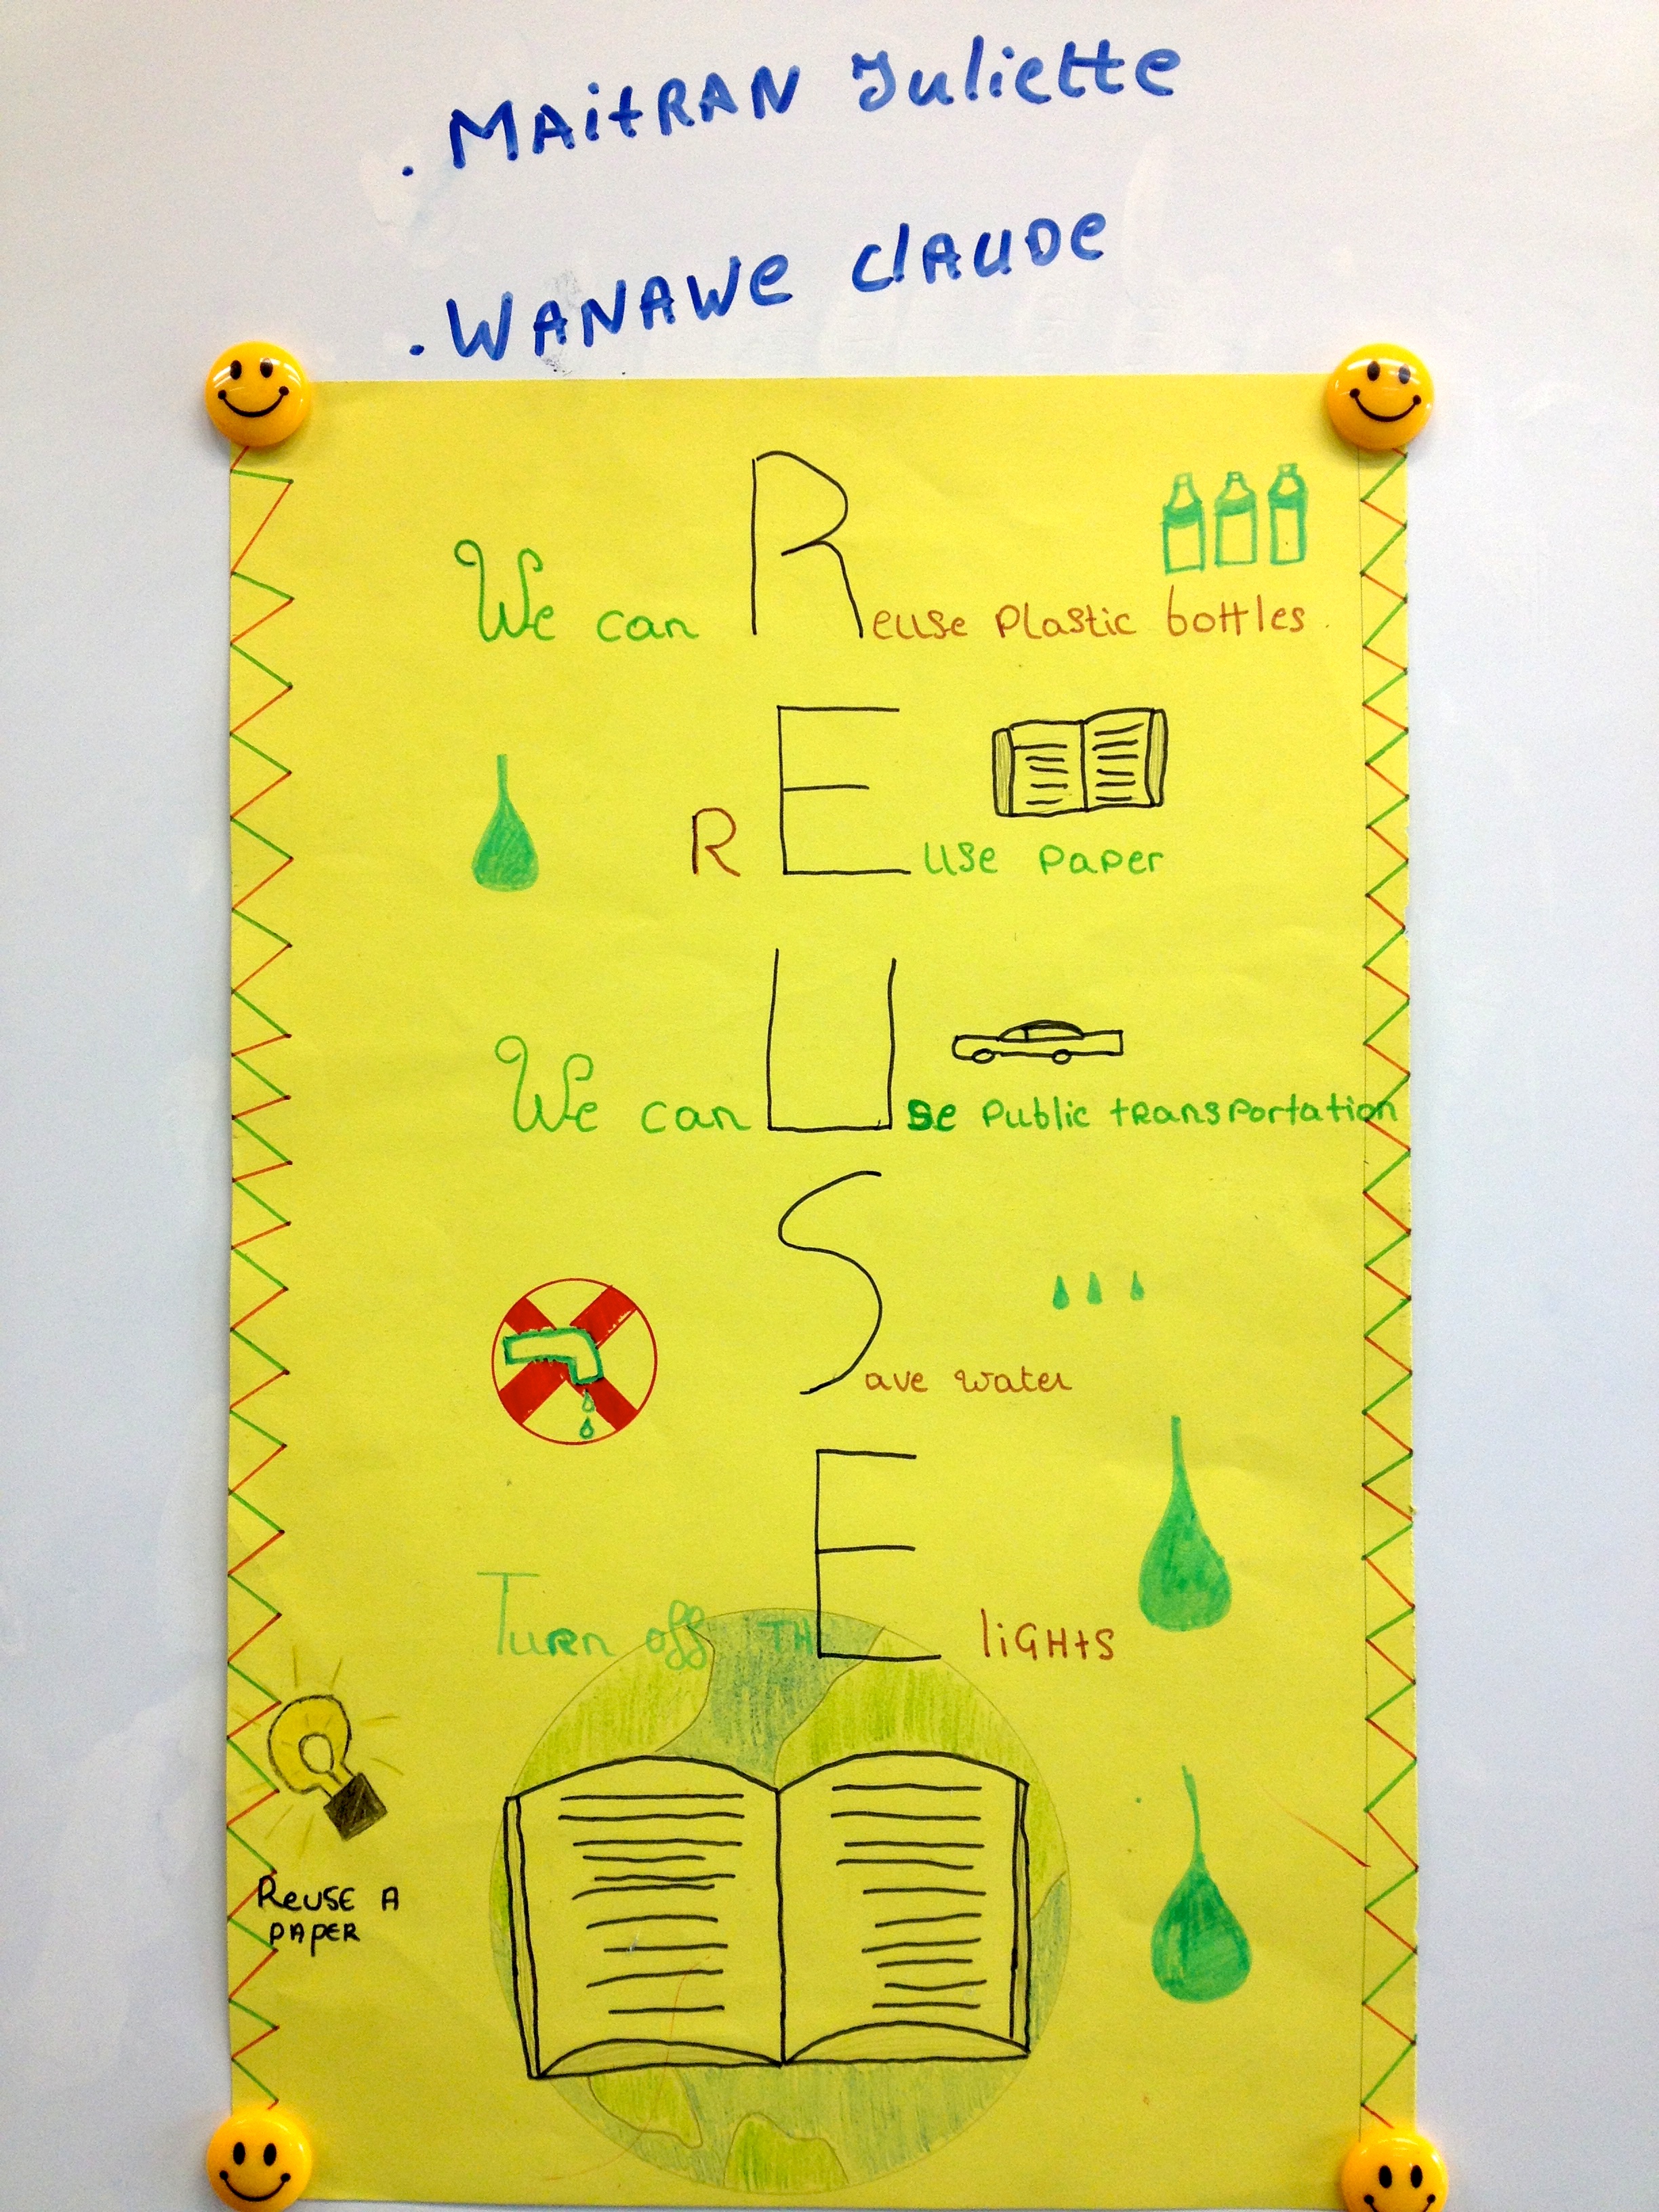 . MAitRAN Juliette
. WANAWe ClAUDe
We can Reuse Plastic bottles.
REUse paper
We can Use Public transportation
Save water
Turn off THE liGHtS
ReUSE A
PAPER